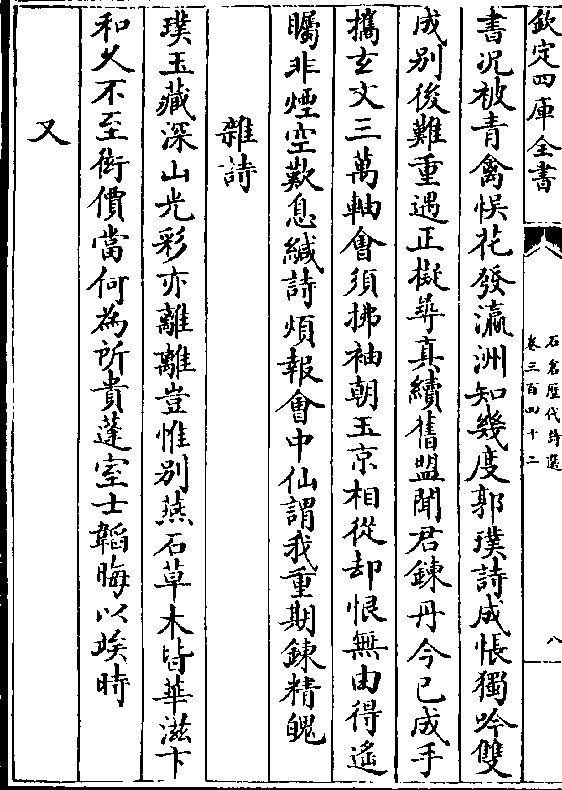 欽定四庫全書
石倉歴代詩選
卷三百四十二
八
書況被青禽悮花發瀛洲知幾度郭璞詩成悵獨吟雙
成别後難重遇正擬尋真續舊盟聞君鍊丹今已成手
攜玄文三萬軸㑹須拂袖朝玉京相從却恨無由得遙
矚非煙空歎息緘詩煩報㑹中仙謂我重期鍊精魄
雜詩
璞玉藏深山光彩亦離離豈惟别燕石草木皆華滋卞
和久不至衒價當何為所貴蓬室士韜晦以竢時
又